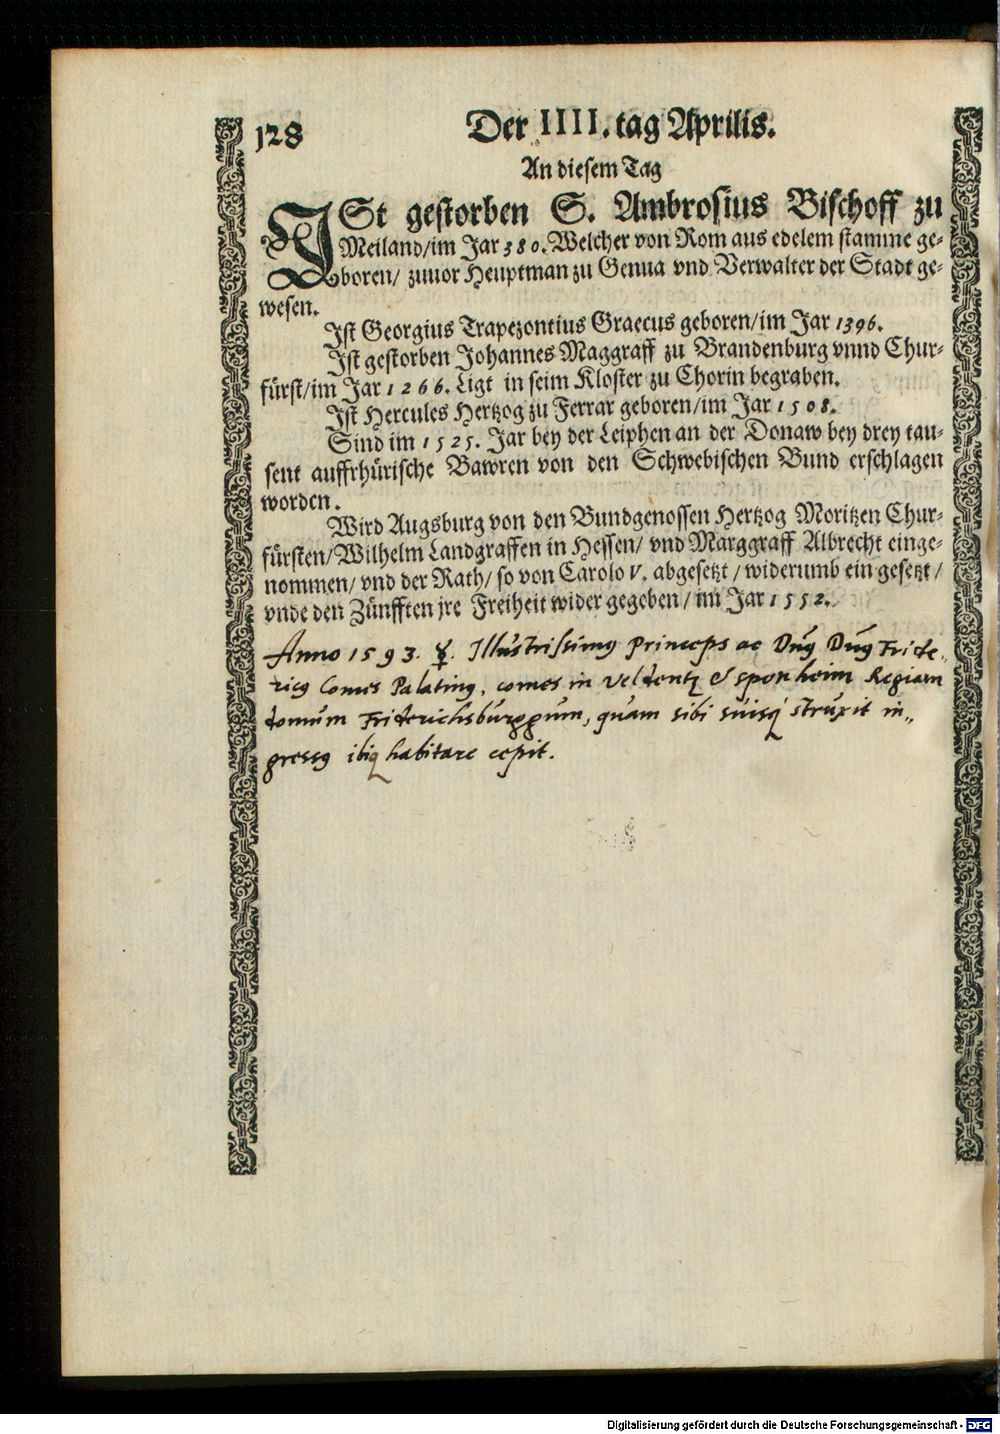 128
Der IIII. tag Aprilis.
An diesem Tag
ISt gestorben S. Ambrosius Bischoff zu
Meiland/im Jar 380. Welcher von Rom aus edelem stamme ge-
boren/ zuuor Heuptman zu Genua vnd Verwalter der Stadt ge-
wesen.
Ist Georgius Trapezontius Graecus geboren/im Jar 1396.
Ist gestorben Johannes Maggraff zu Brandenburg vnnd Chur-
fürst/im Jar 1266. Ligt in seim Kloster zu Chorin begraben.
Ist Hercules Hertzog zu Ferrar geboren/im Jar 1508.
Sind im 1525. Jar bey der Leiphen an der Donaw bey drey tau-
sent auffrhürische Bawren von den Schwebischen Bund erschlagen
worden.
Wird Augsburg von den Bundgenossen Hertzog Moritzen Chur-
fürsten/Wilhelm Landgraffen in Hessen/ vnd Marggraff Albrecht einge-
nommen/ vnd der Rath/ so von Carolo V. abgesetzt/ widerumb ein gesetzt/
vnde den Zünfften jre Freiheit wider gegeben/ im Jar 1552.
Anno 1593. ☿. Illustrissimus Princeps ac Dn̄s Dn̄s Fride„
ricus Comes Palatinus, comes in Veldentz & Sponheim Regiam
domum Friderichsburggum, quam sibi suisq́ struxit in„
gressus ibiq habitare cepit.
Digitalisierung gefördert durch die Deutsche Forschungsgemeinschaft - DFG